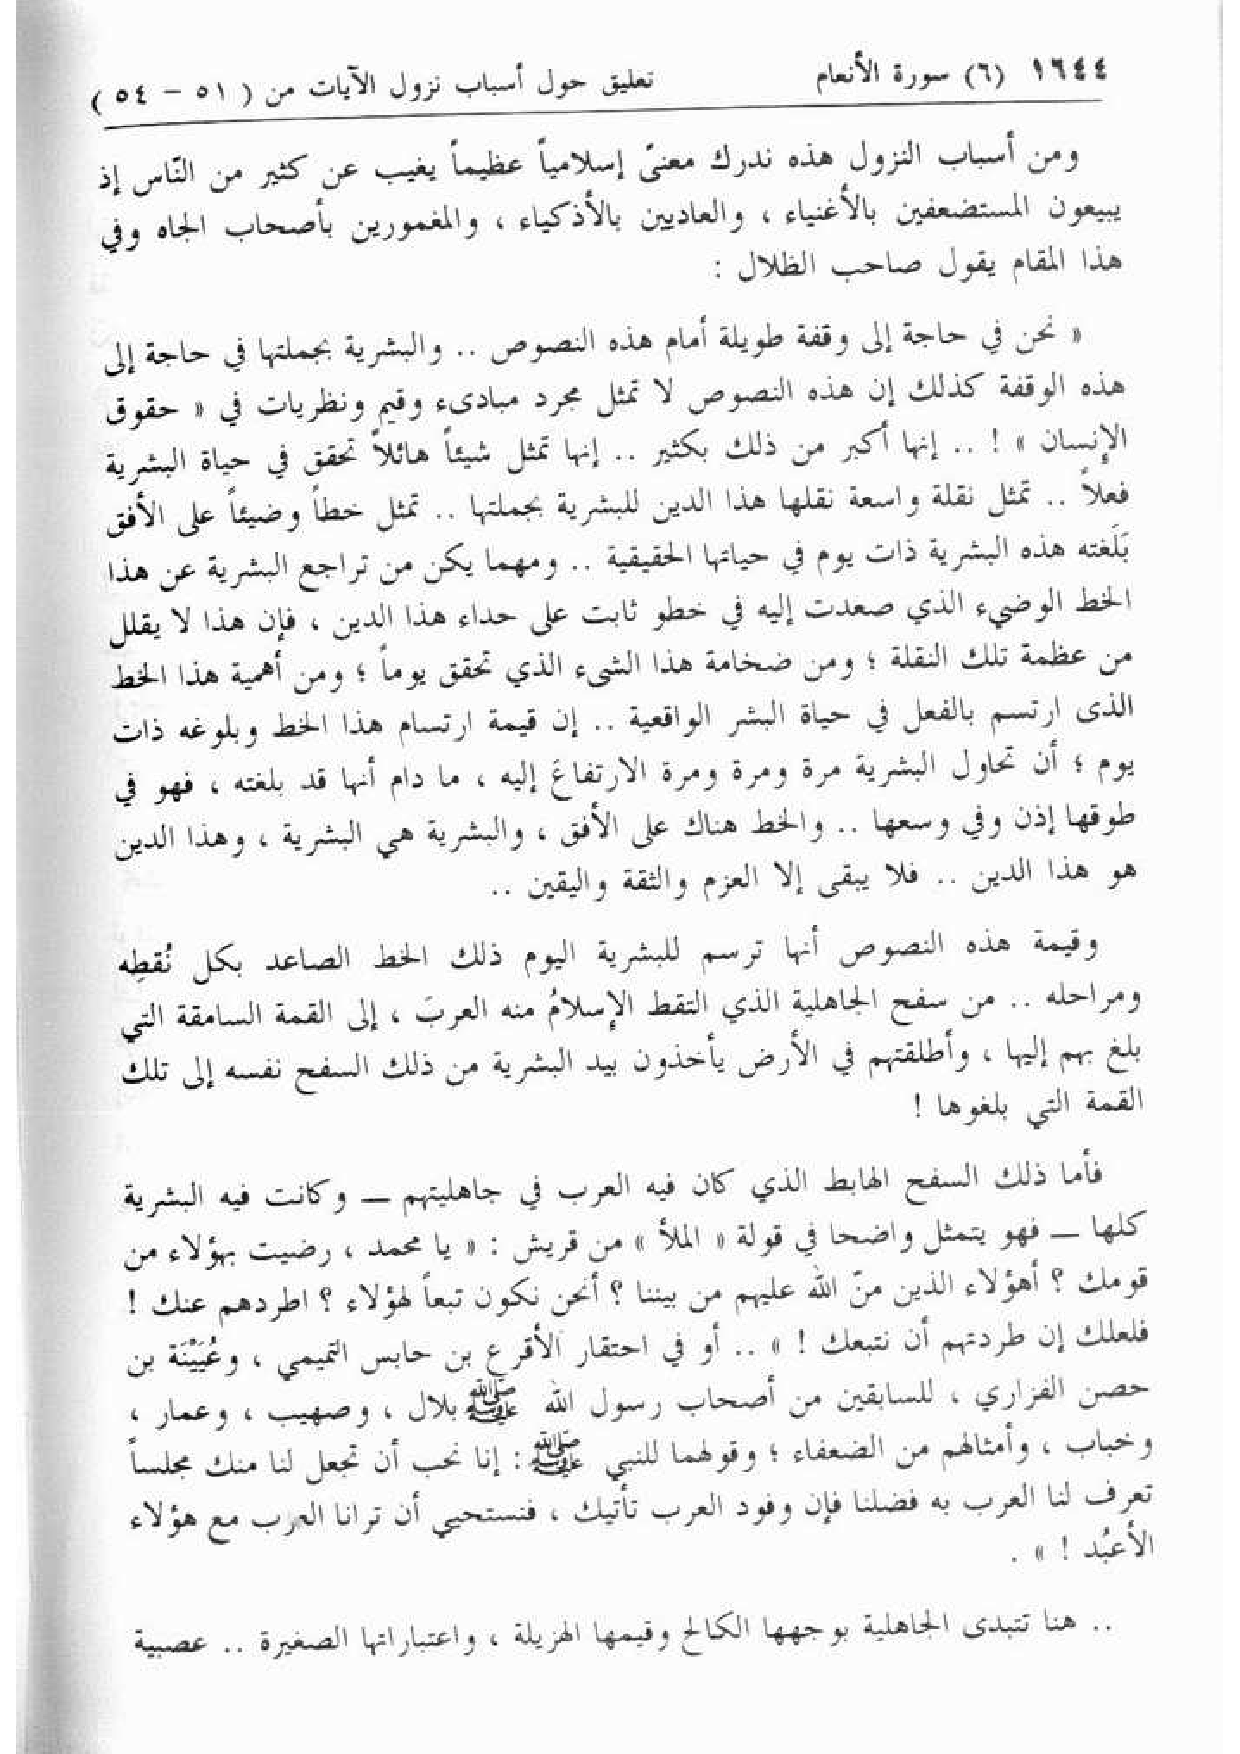 ١٦٤٤ (٦) سورة الأنعام تعليق حول أسباب نزول الآيات من ( ٥١ – ٥٤ )
ومن أسباب النزول هذه ندرك معنىً إسلامياً عظيماً يغيب عن كثير من النّاس إذ
يبيعون المستضعفين بالأغنياء ، والعاديين بالأذكياء ، والمغمورين بأصحاب الجاه وفي
هذا المقام يقول صاحب الظلال :
« نحن في حاجة إلى وقفة طويلة أمام هذه النصوص .. والبشرية بجملتها في حاجة إلى
هذه الوقفة كذلك إن هذه النصوص لا تمثل مجرد مبادىء وقيم ونظريات في « حقوق
الإنسان » ! .. إنها أكبر من ذلك بكثير .. إنها تمثل شيئاً هائلاً تحقق في حياة البشرية
فعلاً .. تمثل نقلة واسعة نقلها هذا الدين للبشرية بجملتها .. تمثل خطاً وضيئاً على الأفق
بَلَغته هذه البشرية ذات يوم في حياتها الحقيقية .. ومهما يكن من تراجع البشرية عن هذا
الخط الوضيء الذي صعدت إليه في خطو ثابت على حداء هذا الدين ، فإن هذا لا يقلل
من عظمة تلك النقلة ؛ ومن ضخامة هذا الشيء الذي تحقق يوماً ؛ ومن أهمية هذا الخط
الذى ارتسم بالفعل في حياة البشر الواقعية .. إن قيمة ارتسام هذا الخط وبلوغه ذات
يوم ؛ أن تحاول البشرية مرة ومرة ومرة الارتفاعَ إليه ، ما دام أنها قد بلغته ، فهو في
طوقها إذن وفي وسعها .. والخط هناك على الأفق ، والبشرية هي البشرية ، وهذا الدين
هو هذا الدين .. فلا يبقى إلا العزم والثقة واليقين ..
وقيمة هذه النصوص أنها ترسم للبشرية اليوم ذلك الخط الصاعد بكل نُقطِه
ومراحله .. من سفح الجاهلية الذي التقط الإسلامُ منه العربَ ، إلى القمة السامقة التي
بلغ بهم إليها ، وأطلقتهم في الأرض يأخذون بيد البشرية من ذلك السفح نفسه إلى تلك
القمة التي بلغوها !
فأما ذلك السفح الهابط الذي كان فيه العرب في جاهليتهم ــ وكانت فيه البشرية
كلها ــ فهو يتمثل واضحا في قولة « الملأ » من قريش : « يا محمد ، رضيت بهؤلاء من
قومك ؟ أهؤلاء الذين منّ الله عليهم من بيننا ؟ أنحن نكون تبعاً لهؤلاء ؟ اطردهم عنك !
فلعلك إن طردتهم أن نتبعك ! » .. أو في احتقار الأقرع بن حابس التميمي ، وعُيَيْنَة بن
حصن الفزاري ، للسابقين من أصحاب رسول الله ﷺ بلال ، وصهيب ، وعمار ،
وخباب ، وأمثالهم من الضعفاء ؛ وقولهما للنبي ﷺ : إنا نحب أن تجعل لنا منك مجلساً
تعرف لنا العرب به فضلنا فإن وفود العرب تأتيك ، فنستحيي أن ترانا العرب مع هؤلاء
الأعبُد ! » .
.. هنا تتبدى الجاهلية بوجهها الكالح وقيمها الهزيلة ، واعتباراتها الصغيرة .. عصبية